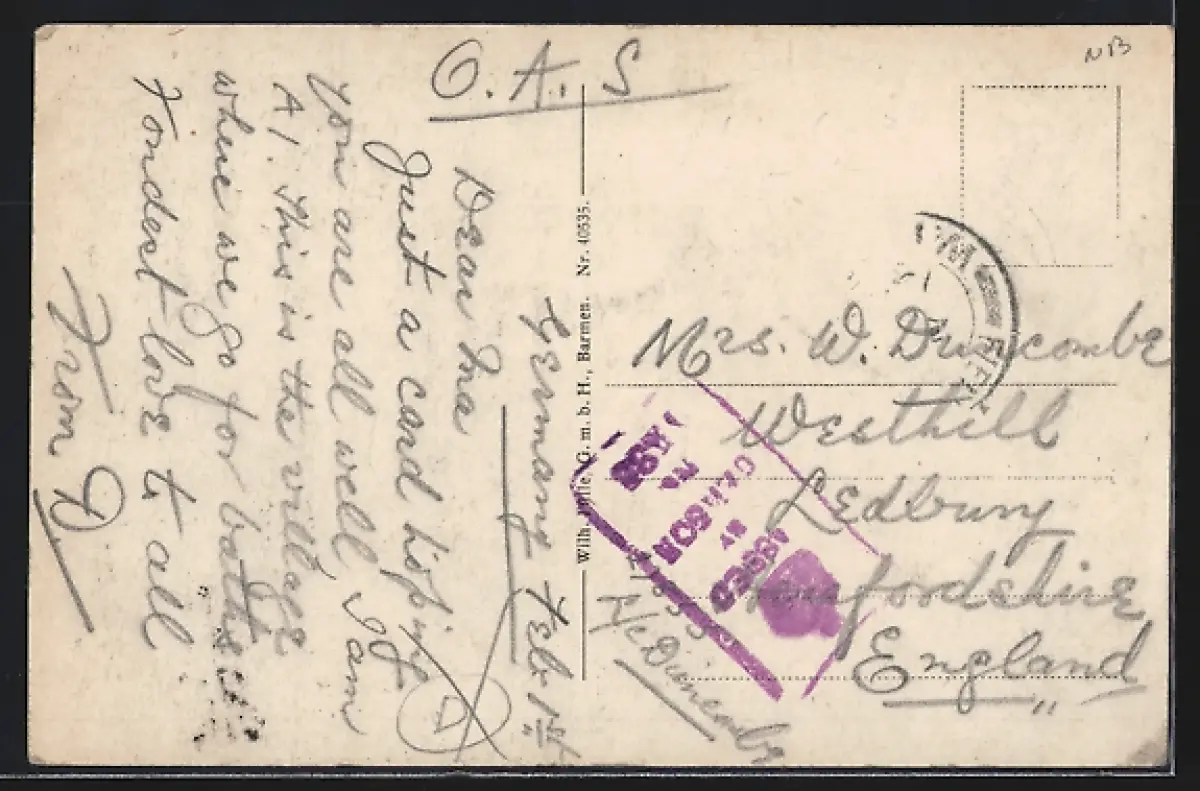 O. A. S
Germany Feb 1st
Dear Ma
Just a card hoping
you are all well I am
A1. This is the village
where we go for baths
Fondest love to all
From R.
Wilh. G. m. b. H., Barmen. Nr. 40535.
NB
Mrs. W. Duncombe
Westhill
Ledbury
Herefordshire
England
R Duncombe
PASSED
BY
CENSOR
No